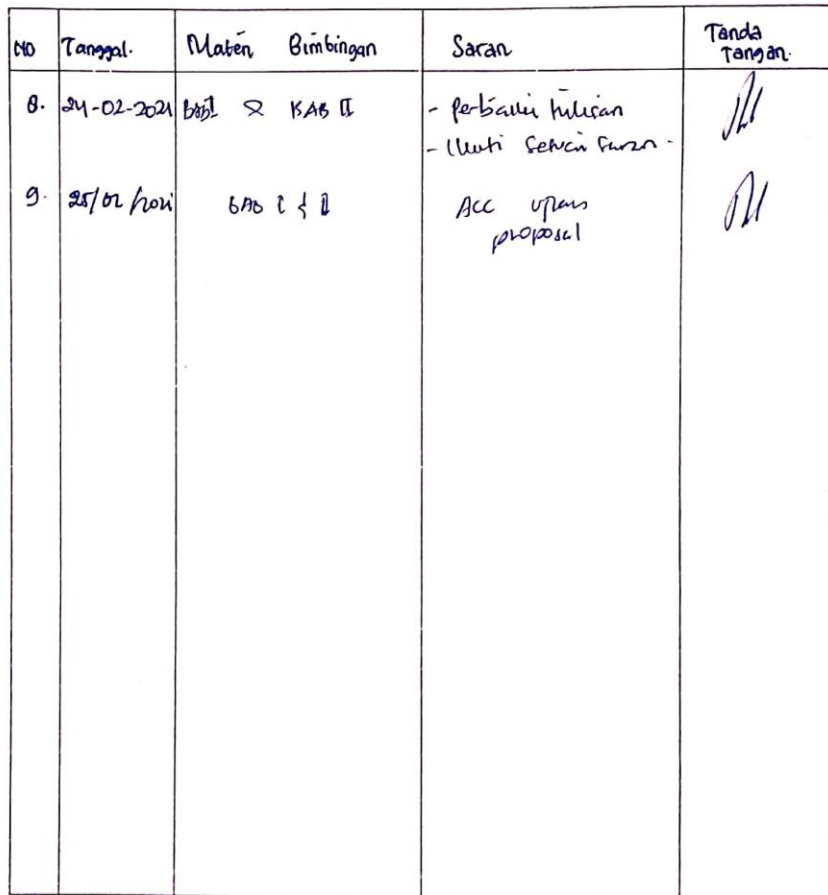 NO Tanggal. Materi Bimbingan Saran Tanda Tangan.
8. 24-02-2021 BAB I & BAB II - Perbaiki tulisan
- Ikuti sesuai saran.
9. 25/02/2021 BAB I & II ACC ujian
proposal